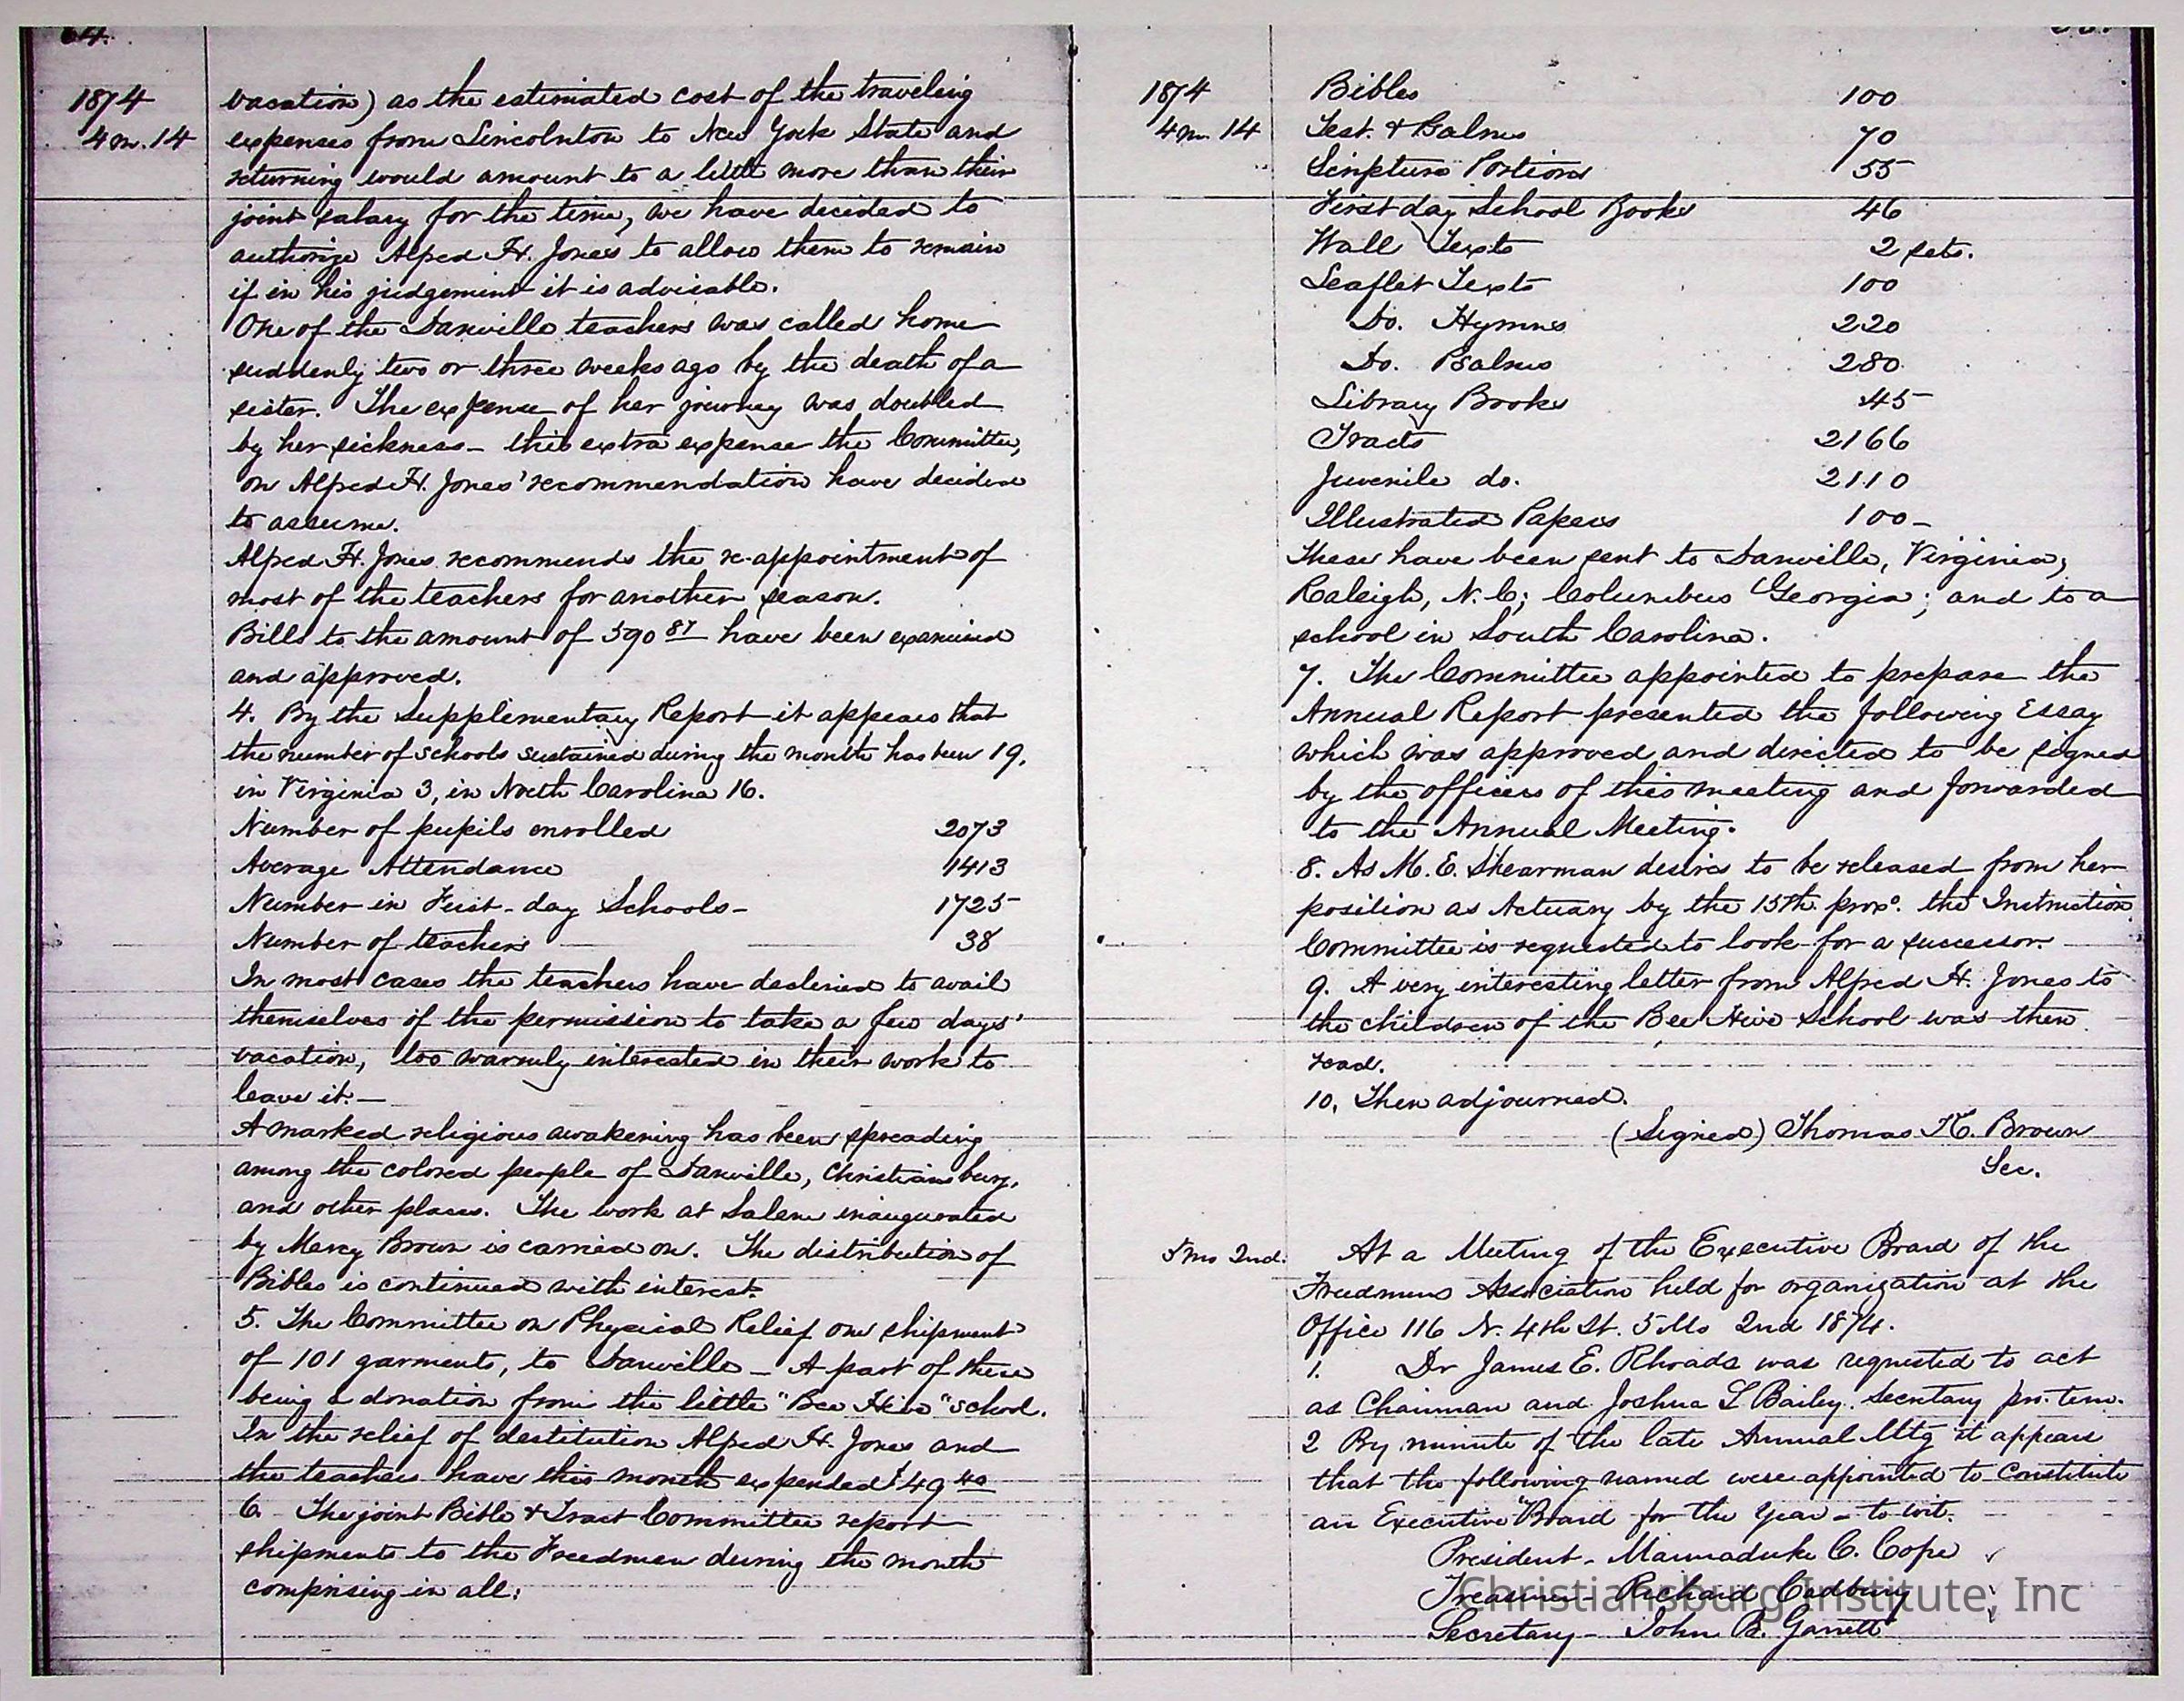 64.
1874
4 m. 14
vacation) as the estimated cost of the traveling
expenses from Lincolnton to New York State and
returning would amount to a little more than their
joint salary for the time, we have decided to
authorize Alfred H. Jones to allow them to remain
if in his judgement it is advisable.
One of the Danville teachers was called home
suddenly two or three weeks ago by the death of a
sister. The expense of her journey was doubled
by her sickness - this extra expense the Committee,
on Alfred H. Jones' recommendation have decided
to assume.
Alfred H. Jones recommends the re-appointment of
most of the teachers for another season.
Bills to the amount of 590 87 have been examined
and approved.
4. By the Supplementary Report it appears that
the number of schools sustained during the month has been 19,
in Virginia 3, in North Carolina 16.
Number of pupils enrolled 2073
Average Attendance 1413
Number in First-day Schools - 1725
Number of teachers 38
In most cases the teachers have declined to avail
themselves of the permission to take a few days'
vacation, too warmly interested in their work to
leave it. —
A marked religious awakening has been spreading
among the colored people of Danville, Christiansburg,
and other places. The work at Salem inaugurated
by Mercy Brown is carried on. The distribution of
Bibles is continued with interest.
5. The Committee on Physical Relief one shipment
of 101 garments, to Danville - A part of these
being a donation from the little "Bee Hive" school.
In the relief of destitution Alfred H. Jones and
the teachers have this month expended $49 40
6. The joint Bible & Tract Committee report
shipments to the Freedmen during the month
comprising in all:
1874
4 m. 14
Bibles 100
Test. & Psalms 70
Scripture Portions 55
First day School Books 46
Wall Texts 2 sets.
Leaflet Texts 100
Do. Hymns 220
Do. Psalms 280
Library Books 45
Tracts 2166
Juvenile do. 2110
Illustrated Papers 100 -
These have been sent to Danville, Virginia;
Raleigh, N. C; Columbus Georgia; and to a
school in South Carolina.
7. The Committee appointed to prepare the
Annual Report presented the following Essay
which was approved and directed to be signed
by the officers of this meeting and forwarded
to the Annual Meeting.
8. As M. E. Shearman desires to be released from her
position as Actuary by the 15th proxo. the Instruction
Committee is requested to look for a successor.
9. A very interesting letter from Alfred H. Jones to
the children of the Bee Hive School was then
read.
10. Then adjourned.
(Signed) Thomas K. Brown
Sec.
5 mo 2nd.
At a Meeting of the Executive Board of the
Freedmens Association held for organization at the
Office 116 N. 4th St. 5 Mo 2nd 1874.
1. Dr James E. Rhoads was requested to act
as Chairman and Joshua L Bailey. Secretary pro. tem.
2 By minute of the late Annual Mtg it appears
that the following named were appointed to Constitute
an Executive Board for the Year - to wit.
President - Marmaduke C. Cope
Treasurer - Richard Cadbury
Secretary - John B. Garrett
Christiansburg Institute, Inc